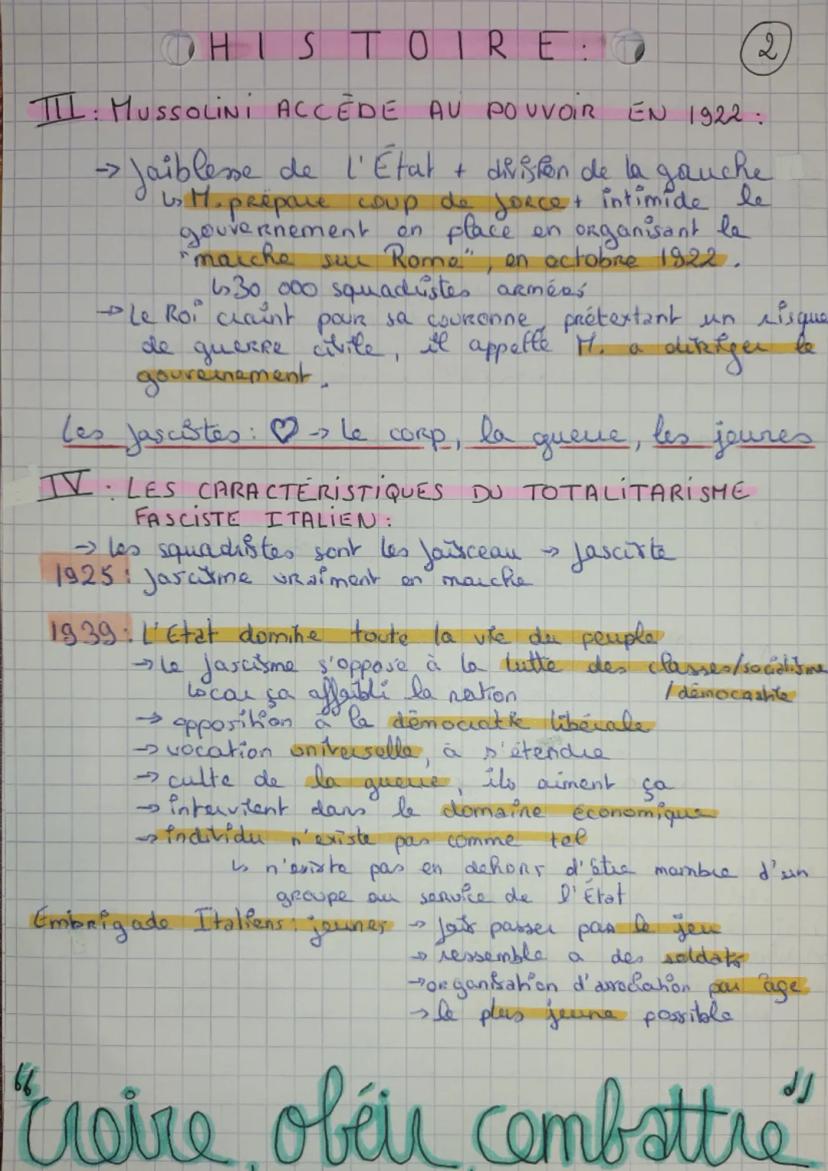 HISTOIRE:
2
III: MUSSOLINI ACCÈDE AU POUVOIR EN 1922:
→ faiblesse de l'État + division de la gauche
↳ M. prépare coup de force + intimide le
gouvernement en place en organisant la
"marche sur Rome", en octobre 1922.
↳ 30 000 squadristes armées
→ Le Roi craint pour sa couronne, prétextant un risque
de guerre civile, il appelle M. a diriger le
gouvernement.
Les fascistes: ♡ → le corp, la guerre, les jeunes
IV. LES CARACTÉRISTIQUES DU TOTALITARISME
FASCISTE ITALIEN:
→ les squadristes sont les faisceau → fasciste
1925: fascisme vraiment en marche
1939: L'Etat domine toute la vie du peuple
→ le fascisme s'oppose à la lutte des classes/socialisme
↳ car ça affaibli la nation /démocratie
→ opposition à la démocratie libérale
→ vocation universelle, à s'étendre
→ culte de la guerre, ils aiment ça
→ intervient dans le domaine économique
→ individu n'existe pas comme tel
↳ n'existe pas en dehors d'être membre d'un
groupe au service de l'État
Embrigade Italiens: jeunes → fait passer par le jeu
→ ressemble a des soldats
→ organisation d'association par âge
→ le plus jeune possible
"croire, obéir, combattre"